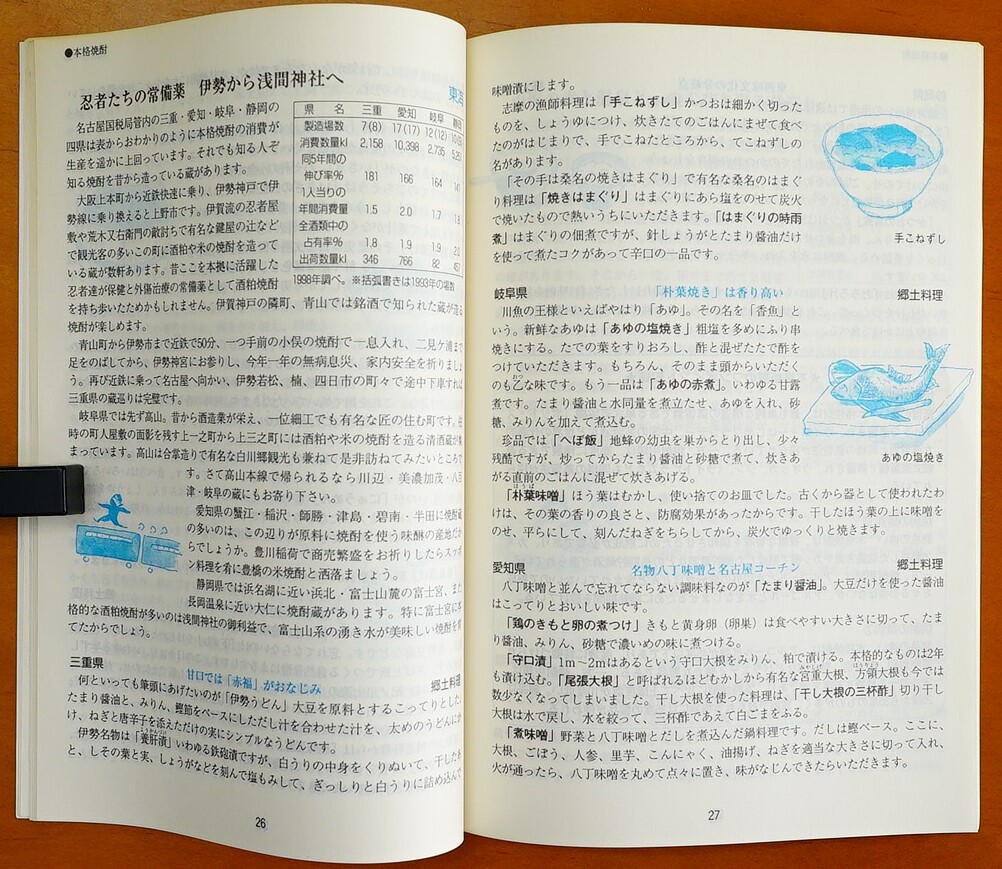 ●本格焼酎
忍者たちの常備薬 伊勢から浅間神社へ
東海
名古屋国税局管内の三重・愛知・岐阜・静岡の
四県は表からおわかりのように本格焼酎の消費が
生産を遥かに上回っています。それでも知る人ぞ
知る焼酎を昔から造っている蔵があります。
大阪上本町から近鉄快速に乗り、伊勢神戸で伊
勢線に乗り換えると上野市です。伊賀流の忍者屋
敷や荒木又右衛門の敵討ちで有名な鍵屋の辻など
で観光客の多いこの町に酒粕や米の焼酎を造って
いる蔵が数軒あります。昔ここを本拠に活躍した
忍者達が保健と外傷治療の常備薬として酒粕焼酎
を持ち歩いたためかもしれません。伊賀神戸の隣町、青山では銘酒で知られた蔵が造る
焼酎が楽しめます。
県 名 三重 愛知 岐阜
製造場数 7(8) 17(17) 12(12)
消費数量kl 2,158 10.398 2.735
同5年間の
伸び率% 181 166 164
1人当りの
年間消費量 1.5 2.0 1.7
全酒類中の
占有率% 1.8 1.9 1.9
出荷数量kl 346 766 82 457
1998年調べ。※括弧書きは1993年の場数
青山町から伊勢市まで近鉄で50分、一つ手前の小俣の焼酎で一息入れ、二見ケ浦まで
足をのばしてから、伊勢神宮にお参りし、今年一年の無病息災、家内安全を祈りましょ
う。再び近鉄に乗って名古屋へ向かい、伊勢若松、楠、四日市の町々で途中下車すれば
三重県の蔵巡りは完璧です。
岐阜県では先ず高山。昔から酒造業が栄え、一位細工でも有名な匠の住む町です。
時の町人屋敷の面影を残す上一之町から上三之町には酒粕や米の焼酎を造る清酒蔵が
まっています。高山は合掌造りで有名な白川郷観光も兼ねて是非訪ねてみたいところで
す。さて高山本線で帰られるなら川辺・美濃加茂・八百
津・岐阜の蔵にもお寄り下さい。
愛知県の蟹江・稲沢・師勝・津島・碧南・半田に焼酎蔵
の多いのは、この辺りが原料に焼酎を使う味醂の産地だか
らでしょうか。豊川稲荷で商売繁盛をお祈りしたらスッポ
ン料理を肴に豊橋の米焼酎と洒落ましょう。
静岡県では浜名湖に近い浜北・富士山麓の富士宮、また
長岡温泉に近い大仁に焼酎蔵があります。特に富士宮に本
格的な酒粕焼酎が多いのは浅間神社の御利益で、富士山系の湧き水が美味しい焼酎を育
てたからでしょう。
三重県 甘口では「赤福」がおなじみ 郷土料理
何といっても筆頭にあげたいのが「伊勢うどん」大豆を原料とするこってりとした
たまり醤油と、みりん、鰹節をベースにしただし汁を合わせた汁を、太めのうどんにか
け、ねぎと唐辛子を添えただけの実にシンプルなうどんです。
伊勢名物は「養肝漬」いわゆる鉄砲漬ですが、白うりの中身をくりぬいて、干したあ
と、しその葉と実、しょうがなどを刻んで塩もみして、ぎっしりと白うりに詰め込んで
26
味噌漬にします。
志摩の漁師料理は「手こねずし」かつおは細かく切った
ものを、しょうゆにつけ、炊きたてのごはんにまぜて食べ
たのがはじまりで、手でこねたところから、てこねずしの
名があります。
「その手は桑名の焼きはまぐり」で有名な桑名のはまぐ
り料理は「焼きはまぐり」はまぐりにあら塩をのせて炭火
で焼いたもので熱いうちにいただきます。「はまぐりの時雨
煮」はまぐりの佃煮ですが、針しょうがとたまり醤油だけ
を使って煮たコクがあって辛口の一品です。
手こねずし
岐阜県 「朴葉焼き」は香り高い 郷土料理
川魚の王様といえばやはり「あゆ」。その名を「香魚」と
いう。新鮮なあゆは「あゆの塩焼き」粗塩を多めにふり串
焼きにする。たでの葉をすりおろし、酢と混ぜたたで酢を
つけていただきます。もちろん、そのまま頭からいただく
のも乙な味です。もう一品は「あゆの赤煮」。いわゆる甘露
煮です。たまり醤油と水同量を煮立たせ、あゆを入れ、砂
糖、みりんを加えて煮込む。
珍品では「へぼ飯」地蜂の幼虫を巣からとり出し、少々
残酷ですが、炒ってからたまり醤油と砂糖で煮て、炊きあ
がる直前のごはんに混ぜて炊きあげる。
あゆの塩焼き
「朴葉味噌」ほう葉はむかし、使い捨てのお皿でした。古くから器として使われたわ
けは、その葉の香りの良さと、防腐効果があったからです。干したほう葉の上に味噌を
のせ、平らにして、刻んだねぎをちらしてから、炭火でゆっくりと焼きます。
愛知県 名物八丁味噌と名古屋コーチン 郷土料理
八丁味噌と並んで忘れてならない調味料なのが「たまり醤油」。大豆だけを使った醤油
はこってりとおいしい味です。
「鶏のきもと卵の煮つけ」きもと黄身卵（卵巣）は食べやすい大きさに切って、たま
り醤油、みりん、砂糖で濃いめの味に煮つける。
「守口漬」1m～2mはあるという守口大根をみりん、粕で漬ける。本格的なものは2年
も漬け込む。「尾張大根」と呼ばれるほどむかしから有名な宮重大根、方領大根も今では
数少なくなってしまいました。干し大根を使った料理は、「干し大根の三杯酢」切り干し
大根は水で戻し、水を絞って、三杯酢であえて白ごまをふる。
「煮味噌」野菜と八丁味噌とだしを煮込んだ鍋料理です。だしは鰹ベース。ここに、
大根、ごぼう、人参、里芋、こんにゃく、油揚げ、ねぎを適当な大きさに切って入れ、
火が通ったら、八丁味噌を丸めて点々に置き、味がなじんできたらいただきます。
27